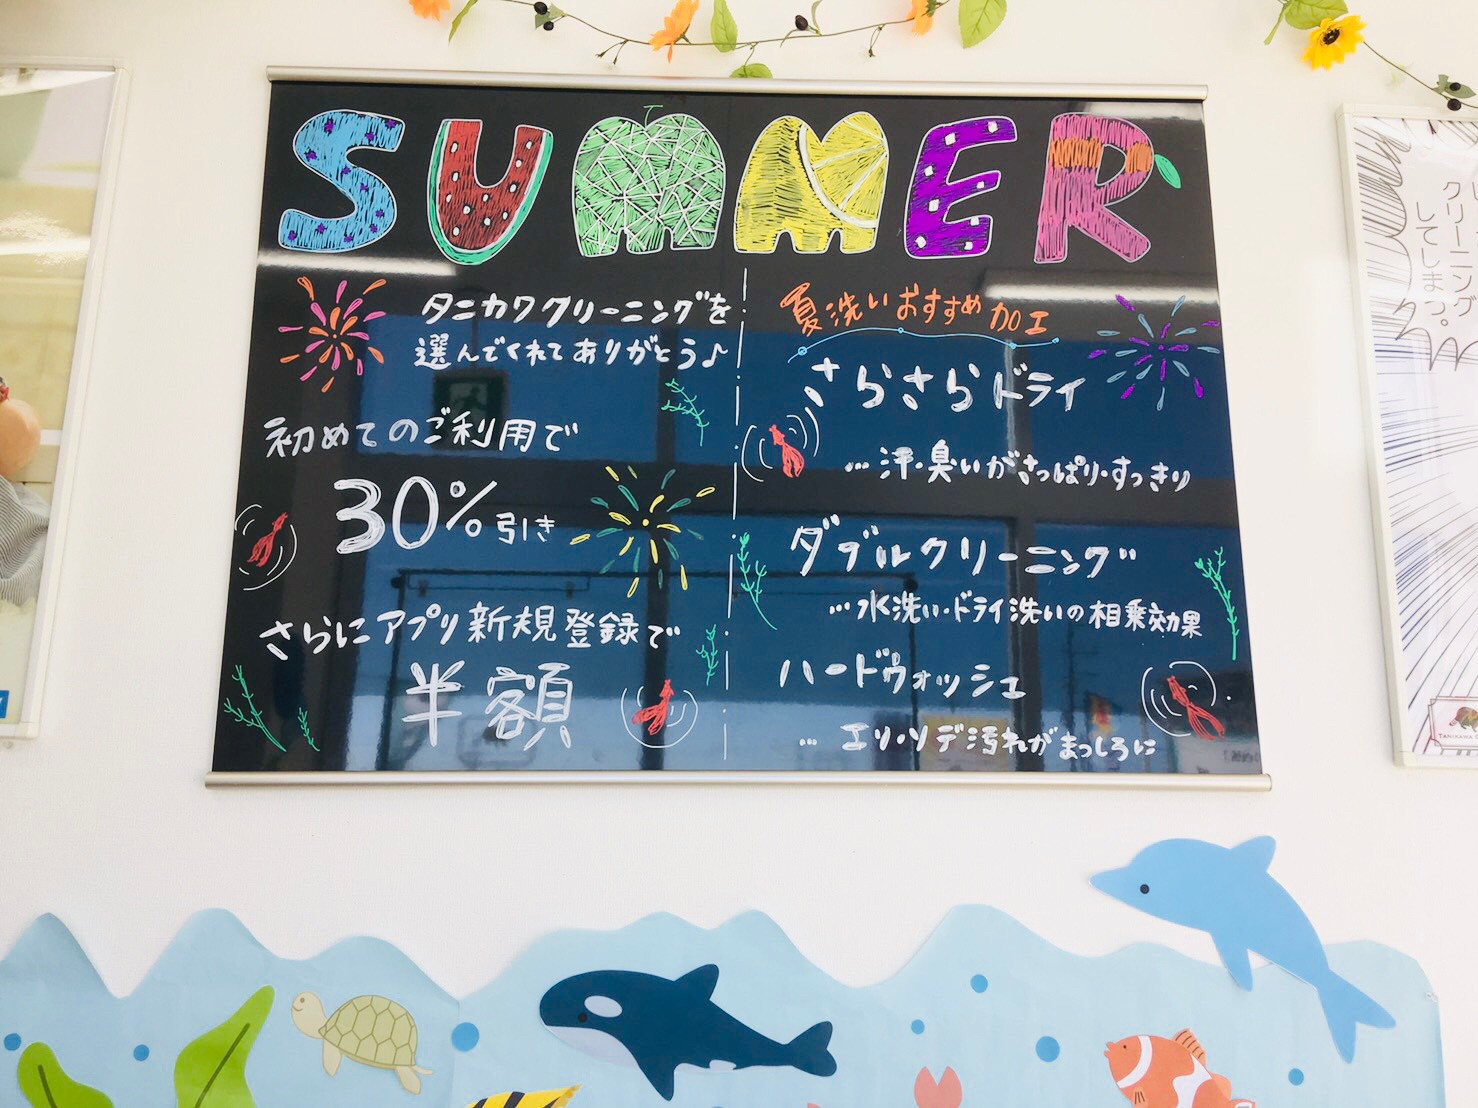 SUMMER
タニカワクリーニングを
選んでくれてありがとう♪
初めてのご利用で
30%引き
さらにアプリ新規登録で
半額
夏洗いおすすめ加工
さらさらドライ
…汗・臭いがさっぱり・すっきり
ダブルクリーニング
…水洗い・ドライ洗いの相乗効果
ハードウォッシュ
…エリ・ソデ汚れがまっしろに
クリーニング
してしまつ。